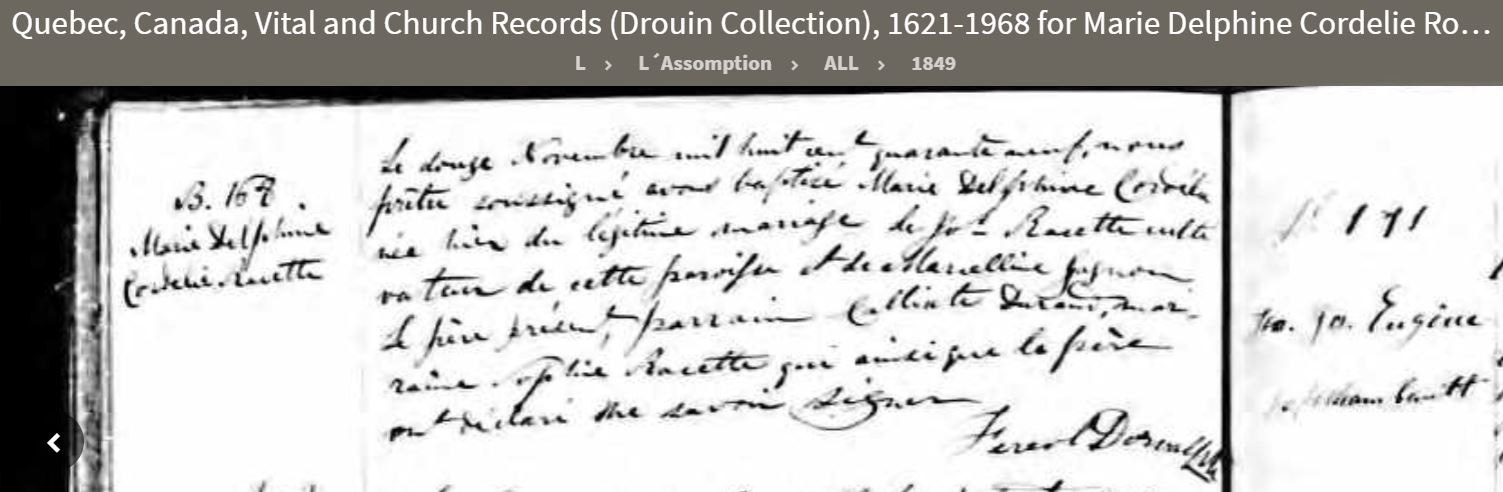 Quebec, Canada, Vital and Church Records (Drouin Collection), 1621-1968 for Marie Delphine Cordelie Ro...
L > L´Assomption > ALL > 1849
B. 168.
Marie Delphine
Cordelie Racette
Le douze Novembre mil huit cent quarante neuf, nous
prêtre soussigné avons baptisé Marie Delphine Cordélie
née hier du légitime mariage de Jos. Racette culti
vateur de cette paroisse et de Marcelline Gagnon
Le père présent, parrain Calliste Durand, mar-
raine Sophie Racette qui ainsi que le père
ont déclaré ne savoir signer
Fereol Dorval
171
Jos. Eugène